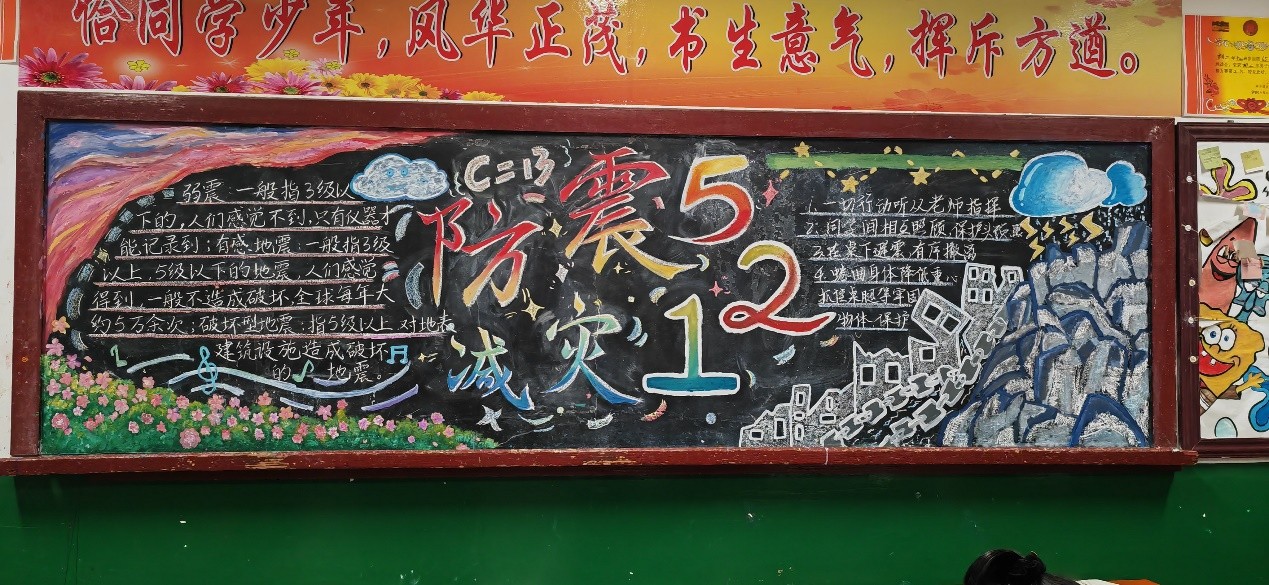 恰同学少年，风华正茂，书生意气，挥斥方遒。
C=13
防震减灾
512
弱震：一般指3级以
下的，人们感觉不到，只有仪器才
能记录到；有感地震：一般指3级
以上，5级以下的地震，人们感觉
得到，一般不造成破坏，全球每年大
约5万余次；破坏型地震：指5级以上对地表
建筑设施造成破坏
的地震。
1.一切行动听从老师指挥
2.同学间相互照顾，保护
3.在桌下避震，有序撤离
4.蜷曲身体降低重心
抓住桌腿等牢固
物体，保护